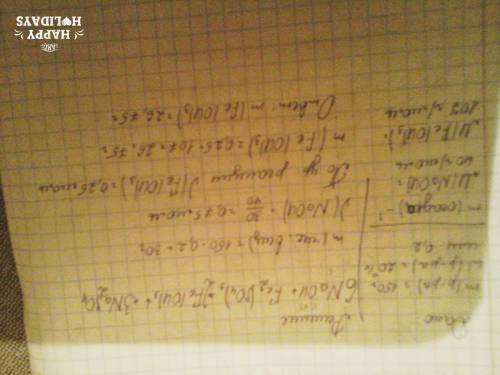 Дано
m(р-ра) = 150г
w(р-ра) = 20%
или 0,2
m(осадка) - ?
M(NaOH) =
40 г/моль
M(Fe(OH)₃) =
107 г/моль
Решение
6NaOH + Fe₂(SO₄)₃ → 2Fe(OH)₃↓ + 3Na₂SO₄
m(чис. вещ) = 150 · 0,2 = 30г
ν(NaOH) = 30/40 = 0,75 моль
По ур реакции ν(Fe(OH)₃) = 0,25 моль
m(Fe(OH)₃) = 0,25 · 107 = 26,75г
Ответ: m(Fe(OH)₃) = 26,75г
HAPPY
HOLIDAYS